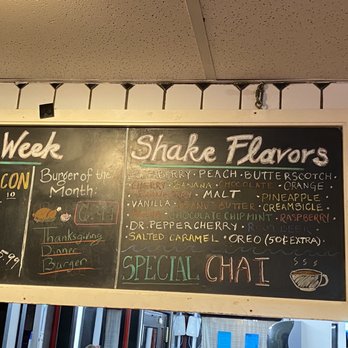 Week
CON
10
5.99
Burger of the
Month:
Thanksgiving
Dinner
Burger
Shake Flavors
PEACH · BUTTERSCOTCH
CHERRY · BANANA · CHOCOLATE · ORANGE
MALT · PINEAPPLE
VANILLA · PEANUT BUTTER · CREAMSICLE
CHOCOLATE CHIP MINT · RASPBERRY
DR. PEPPER CHERRY · ROOT BEER
SALTED CARAMEL · OREO (50¢ EXTRA)
SPECIAL CHAI